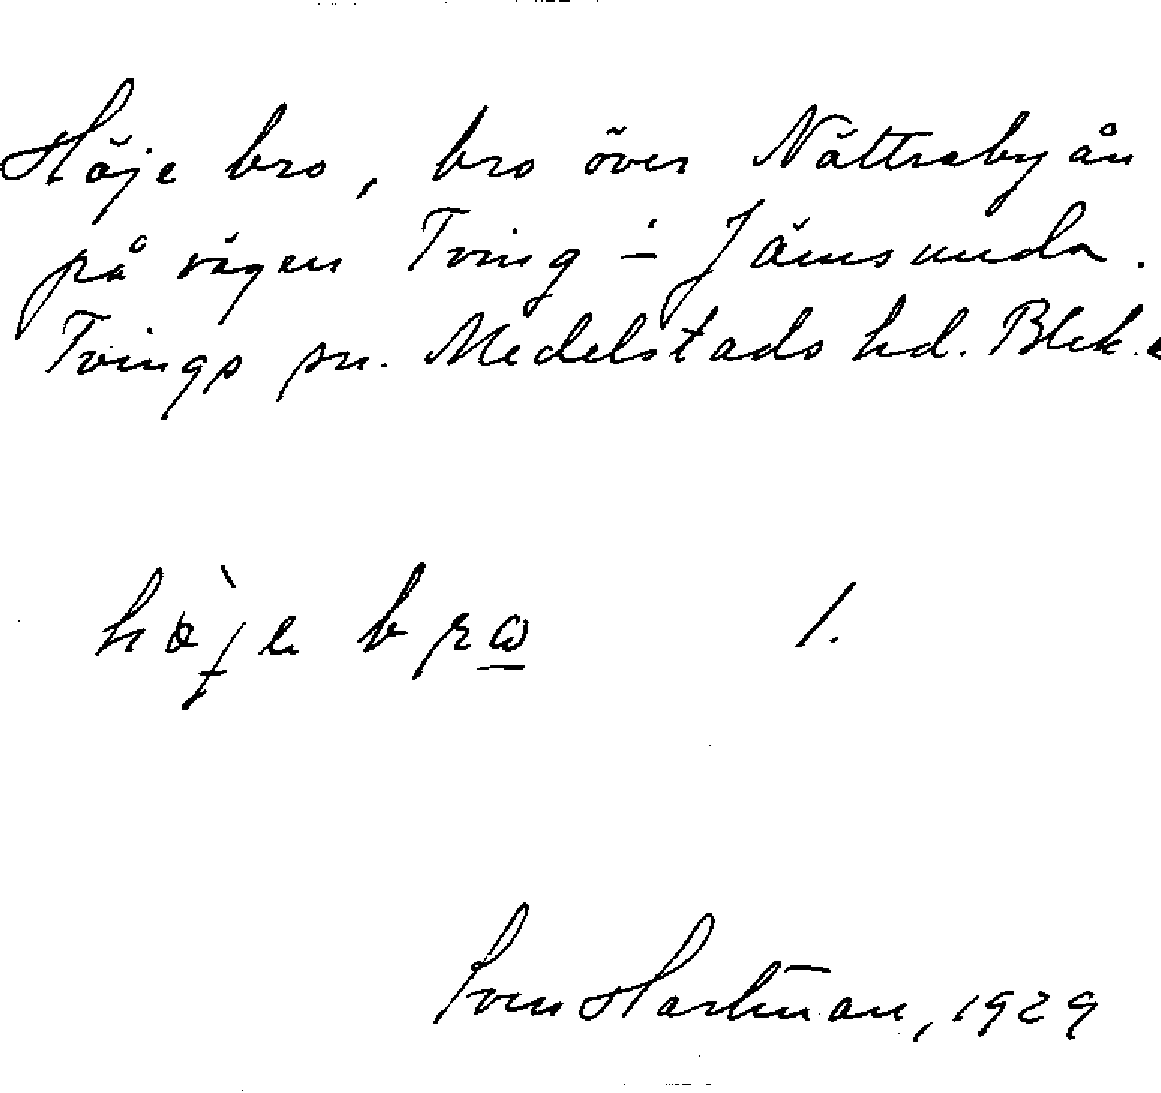 Höje bro, bro över Nättrabyån
på vägen Tving – Jämsunda.
Tvings sn. Medelstads hd. Blek.
höje bro 1.
Sven Hartman, 1929